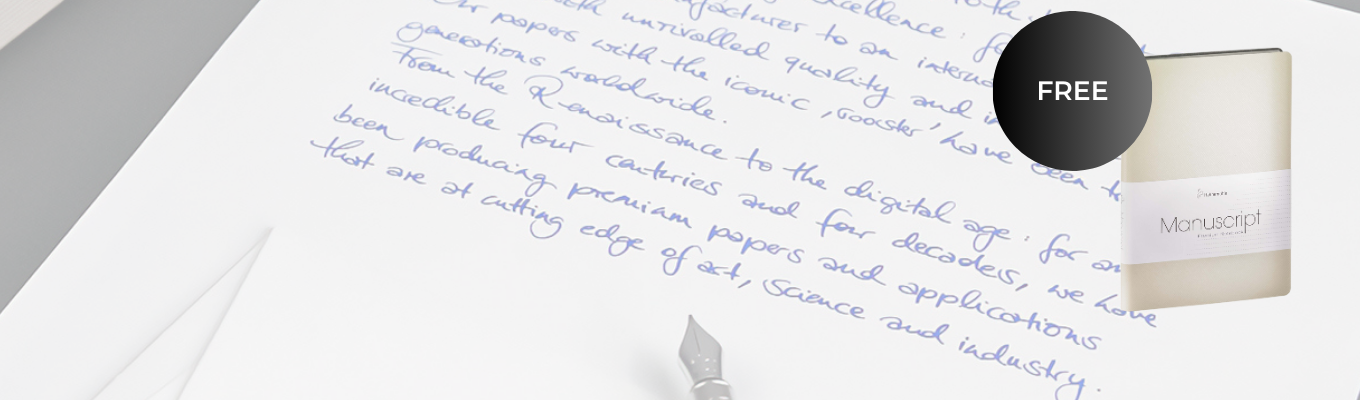 excellence :
with unrivalled quality and
Our papers with the iconic ‚rooster' have been to
generations worldwide.
From the Renaissance to the digital age : for an
incredible four centuries and four decades, we have
been producing premium papers and applications
that are at cutting edge of art, science and industry.
FREE
Manuscript